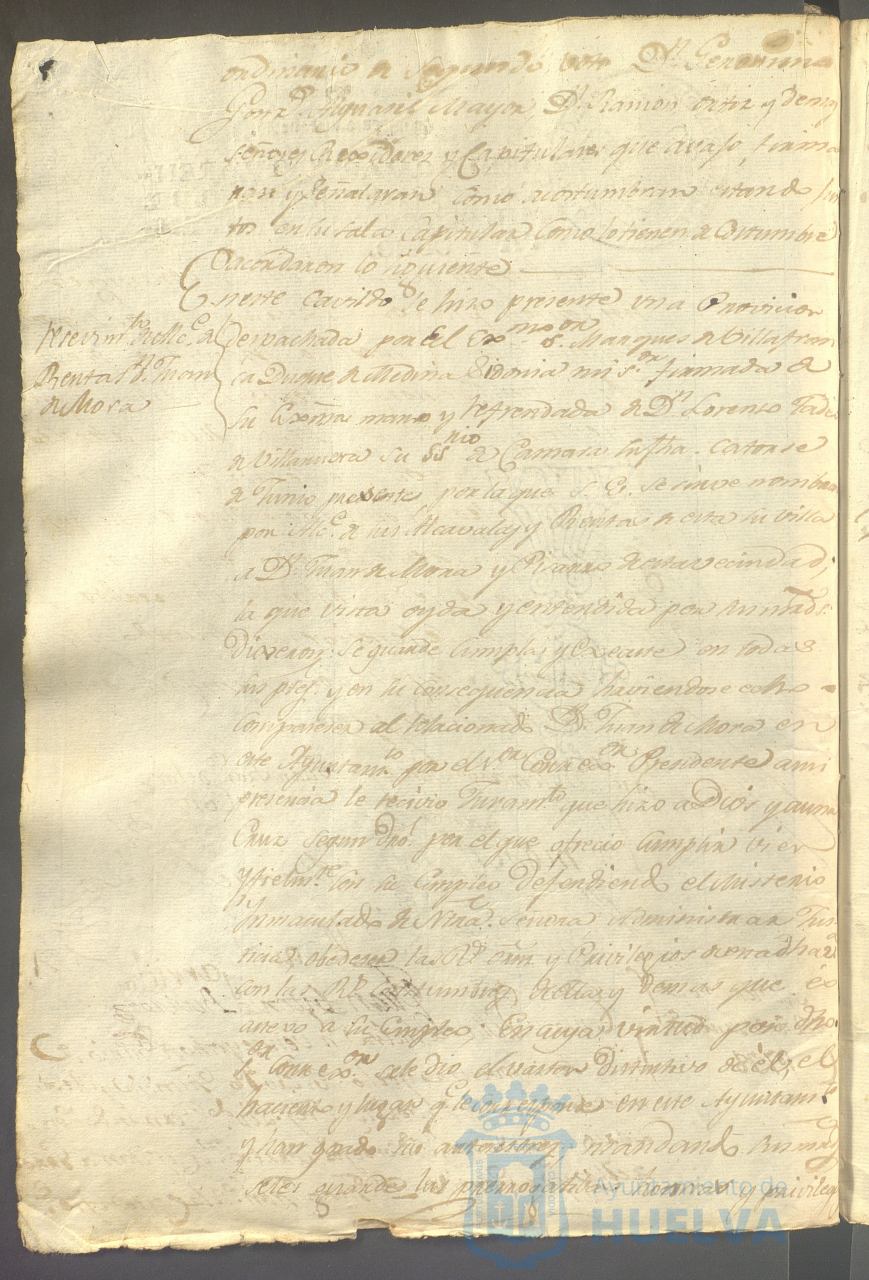 ordinario de segundo voto Dn. Geronimo
Gonz. Alguacil Mayor, Dn. Ramon Ortiz y demas
señores Rexidores y Capitulares que avajo firma
ran y señalaran como acostumbran estando jun
tos en su sala Capitular como lo tienen de Costumbre
acordaron lo siguiente
En este Cavildo se hizo presente una Provicion
despachada por el Exmo. Sor. Marques de Villafran
ca Duque de Medina Sidonia mi Sor. firmada de
su Exma. mano y refrendada de Dn. Lorenzo
de Villanueva su Ssrio. de Camara su fha. Catorse
de Junio presente, por la que S. E. se sirve nombrar
por Alce. de sus Alcavalas y Rentas de esta su villa
a Dn. Juan de Mora y de esta vecindad;
la que vista oyda y entendida por sus mrds.
Dixeron; se guarde cumpla y execute en todas
sus ptes. y en su consequencia haviendose echo
comparecer al relacionado Dn. Juan de Mora en
este Ayuntamto. por el Sor. Correxor. Precidente a mi
presencia le recivio Juramto. que hizo a Dios y a una
Cruz segun dro. por el que ofrecio Cumplir vien
y fielmte. con su Empleo defendiendo el Misterio
Inmaculado de Ntra. Señora, Administrar Jus
ticia, obedecer las Rs. orns. y Privilegios de esta dha. va.
con las Costumbres de ella, y demas que es
anexo a su Empleo; En cuya virtud por dho.
Sor. Correxor. se le dio el vaston distintivo de él, el
haciento y lugar qe. le corresponde en este Ayuntamto.
y han mandando sus mrds.
se les guarde las honras y privileg
Recevimto. de Alce. de
Rentas Dn. Juan
de Mora
Ayuntamiento de
HUELVA